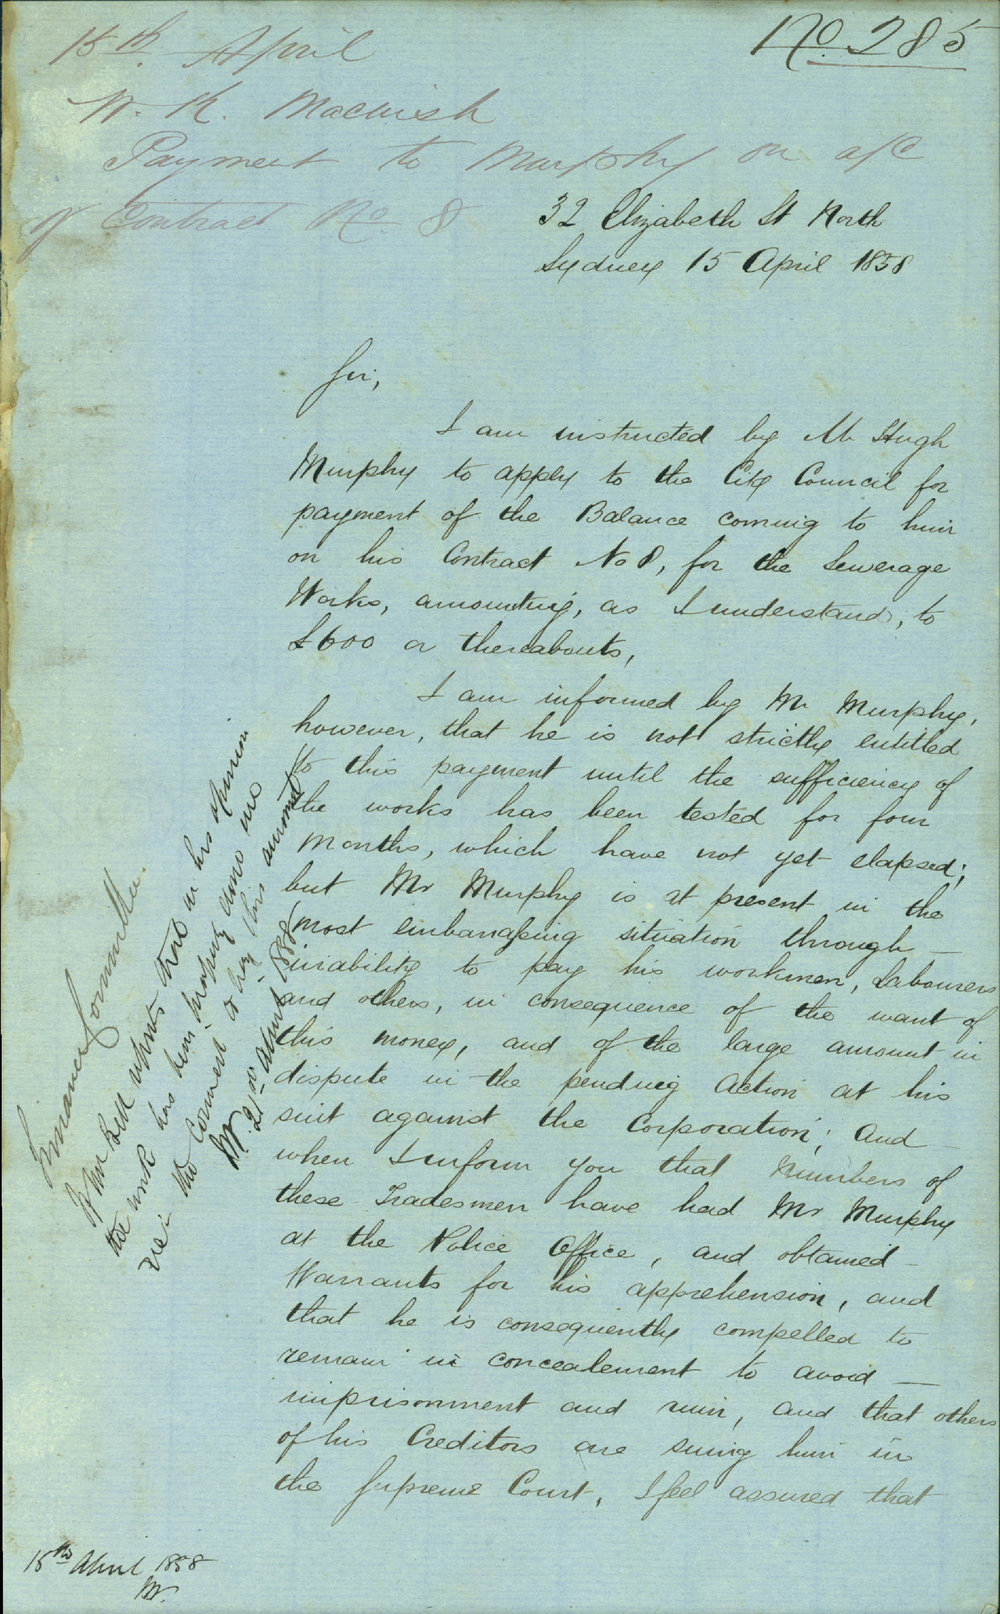 No. 285
15th. April
W. K. Macnish
Payment to Murphy on a/c
of Contract No 8
32 Elizabeth St North
Sydney 15 April 1858
Sir,
I am instructed by Mr Hugh
Murphy to apply to the City Council for
payment of the Balance coming to him
on his Contract No 8, for the Sewerage
Works, amounting, as I understand, to
£600 or thereabouts,
I am informed by Mr Murphy,
however, that he is not strictly entitled
to this payment until the sufficiency of
the works has been tested for four
months, which have not yet elapsed;
but Mr Murphy is at present in the
most embarrassing situation through
inability to pay his workmen, Labourers
and others, in consequence of the want of
this money, and of the large amount in
dispute in the pending Action at his
suit against the Corporation; And
when I inform you that Numbers of
these Tradesmen have had Mr Murphy
at the Police Office, and obtained
Warrants for his apprehension, and
that he is consequently compelled to
remain in concealment to avoid
imprisonment and ruin, and that others
of his Creditors are suing him in
the Supreme Court, I feel assured that
Finance Committee.
If Mr Bell reports that in his opinion
the work has been properly done
the Council to pay this amount
21st April 1858
15th April 1858